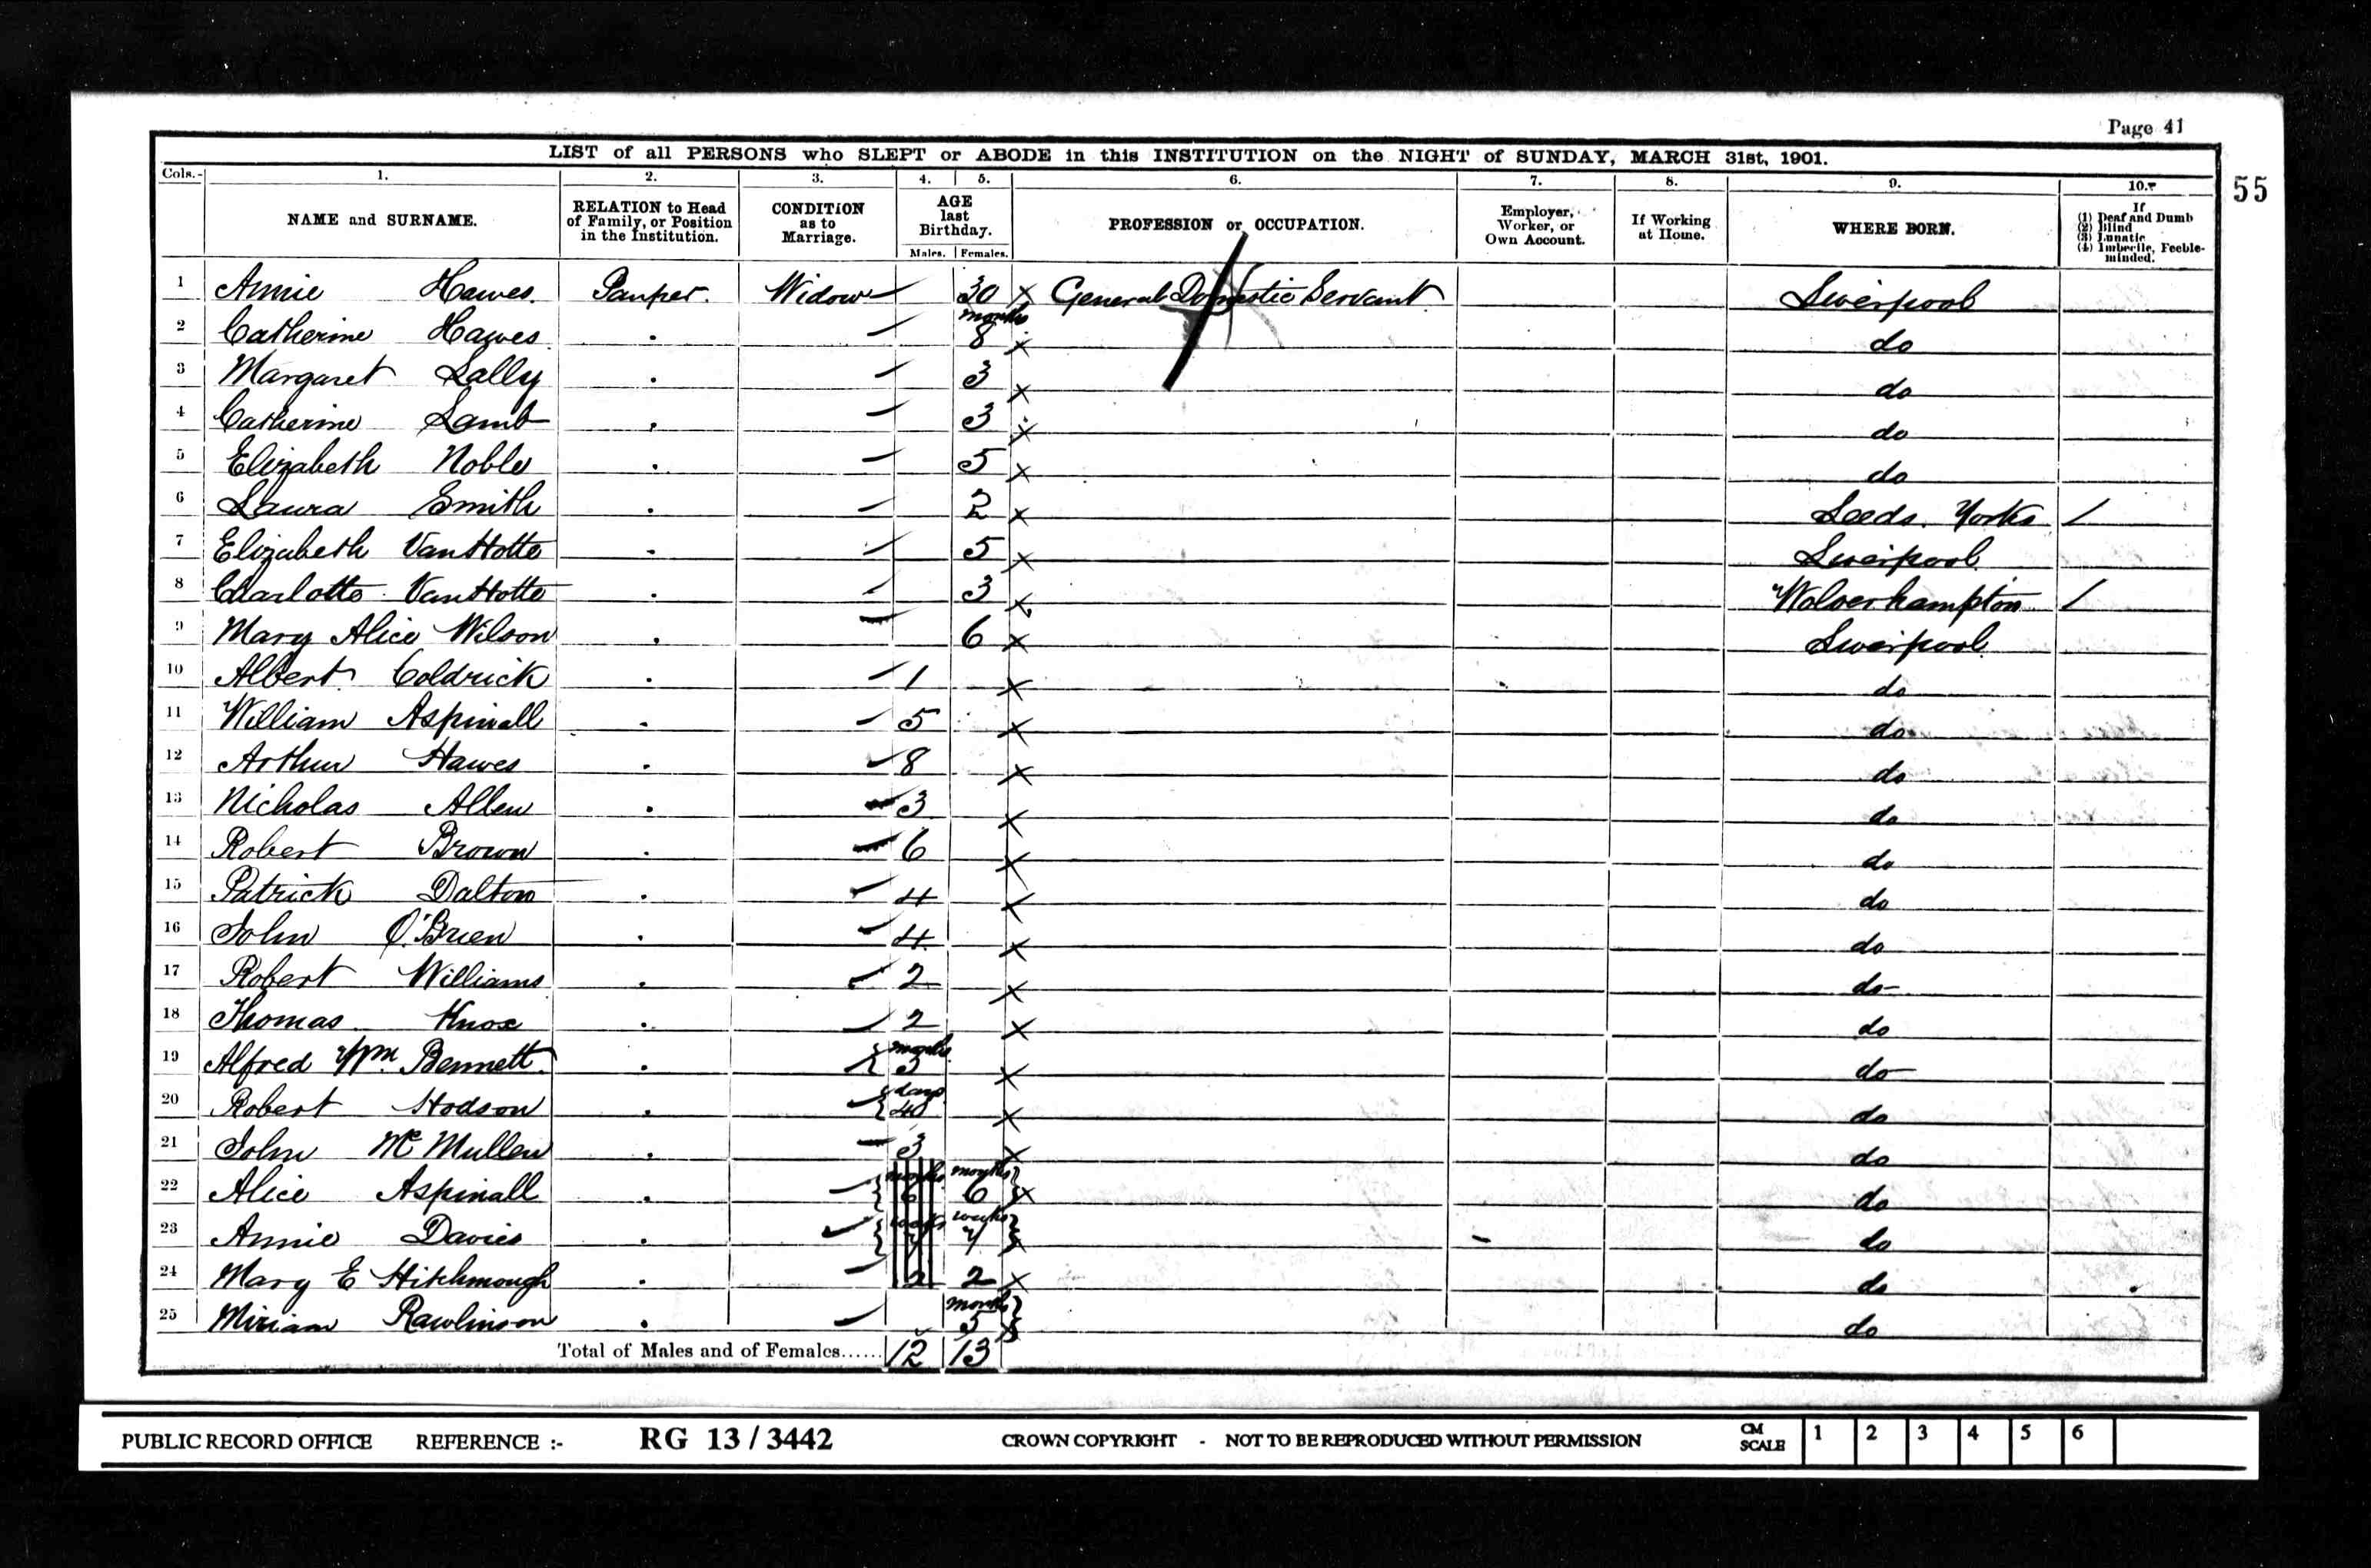 Page 41
LIST of all PERSONS who SLEPT or ABODE in this INSTITUTION on the NIGHT of SUNDAY, MARCH 31st, 1901.
55
Cols. 1. 2. 3. 4. 5. 6. 7. 8. 9. 10.
NAME and SURNAME. RELATION to Head of Family, or Position in the Institution. CONDITION as to Marriage. AGE last Birthday. Males. Females. PROFESSION or OCCUPATION. Employer, Worker, or Own Account. If Working at Home. WHERE BORN. If (1) Deaf and Dumb (2) Blind (3) Lunatic (4) Imbecile, Feeble-minded.
1 Annie Hawes. Pauper. Widow 30 X General Domestic Servant Liverpool
2 Catherine Hawes months 8 X do
3 Margaret Lally 3 X do
4 Catherine Lamb 3 X do
5 Elizabeth Noble 5 X do
6 Laura Smith 2 X Leeds. Yorks /
7 Elizabeth VanHotte 5 X Liverpool
8 Charlotte VanHotte 3 X Wolverhampton /
9 Mary Alice Wilson 6 X Liverpool
10 Albert Coldrick 1 X do
11 William Aspinall 5 X do
12 Arthur Hawes 8 X do
13 Nicholas Allen 3 X do
14 Robert Brown 6 X do
15 Patrick Dalton 4 X do
16 John O'Brien 4 X do
17 Robert Williams 2 X do
18 Thomas Knox 2 X do
19 Alfred Wm. Bennett months 3 X do
20 Robert Hodson days X do
21 John McMullen 3 X do
22 Alice Aspinall months 6 months 6 X do
23 Annie Davies weeks 7 weeks 7 X do
24 Mary E Hitchmough 2 2 X do
25 Miriam Rawlinson months 5 X do
Total of Males and of Females...... 12 13
PUBLIC RECORD OFFICE REFERENCE :- RG 13 / 3442 CROWN COPYRIGHT - NOT TO BE REPRODUCED WITHOUT PERMISSION CM SCALE 1 2 3 4 5 6